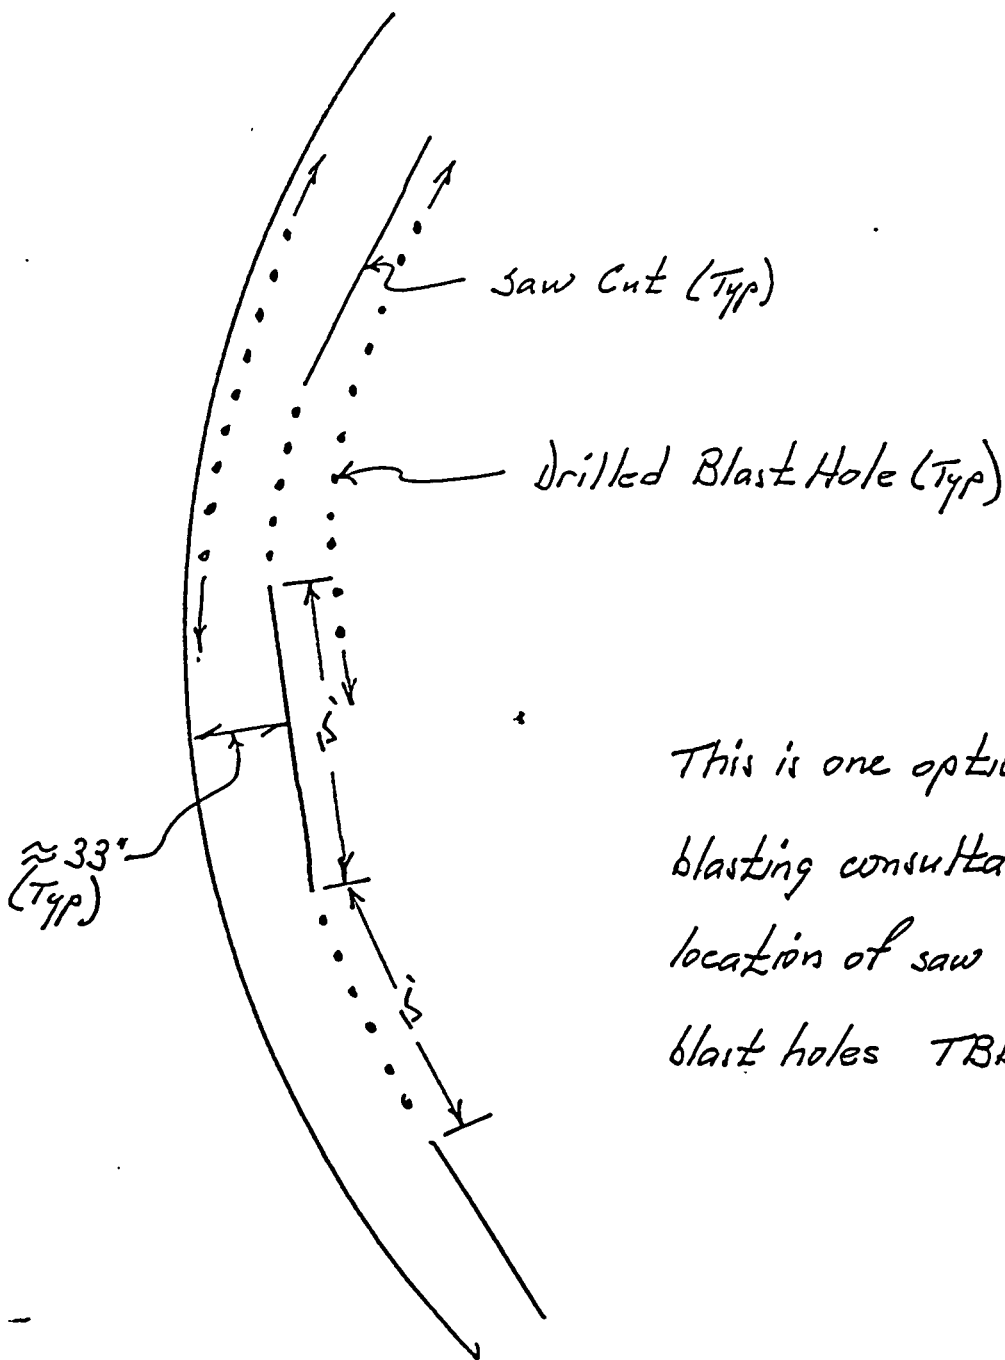 Saw Cut (Typ)
Drilled Blast Hole (Typ)
≈ 33"
(Typ)
This is one
blasting
location of saw
blast holes